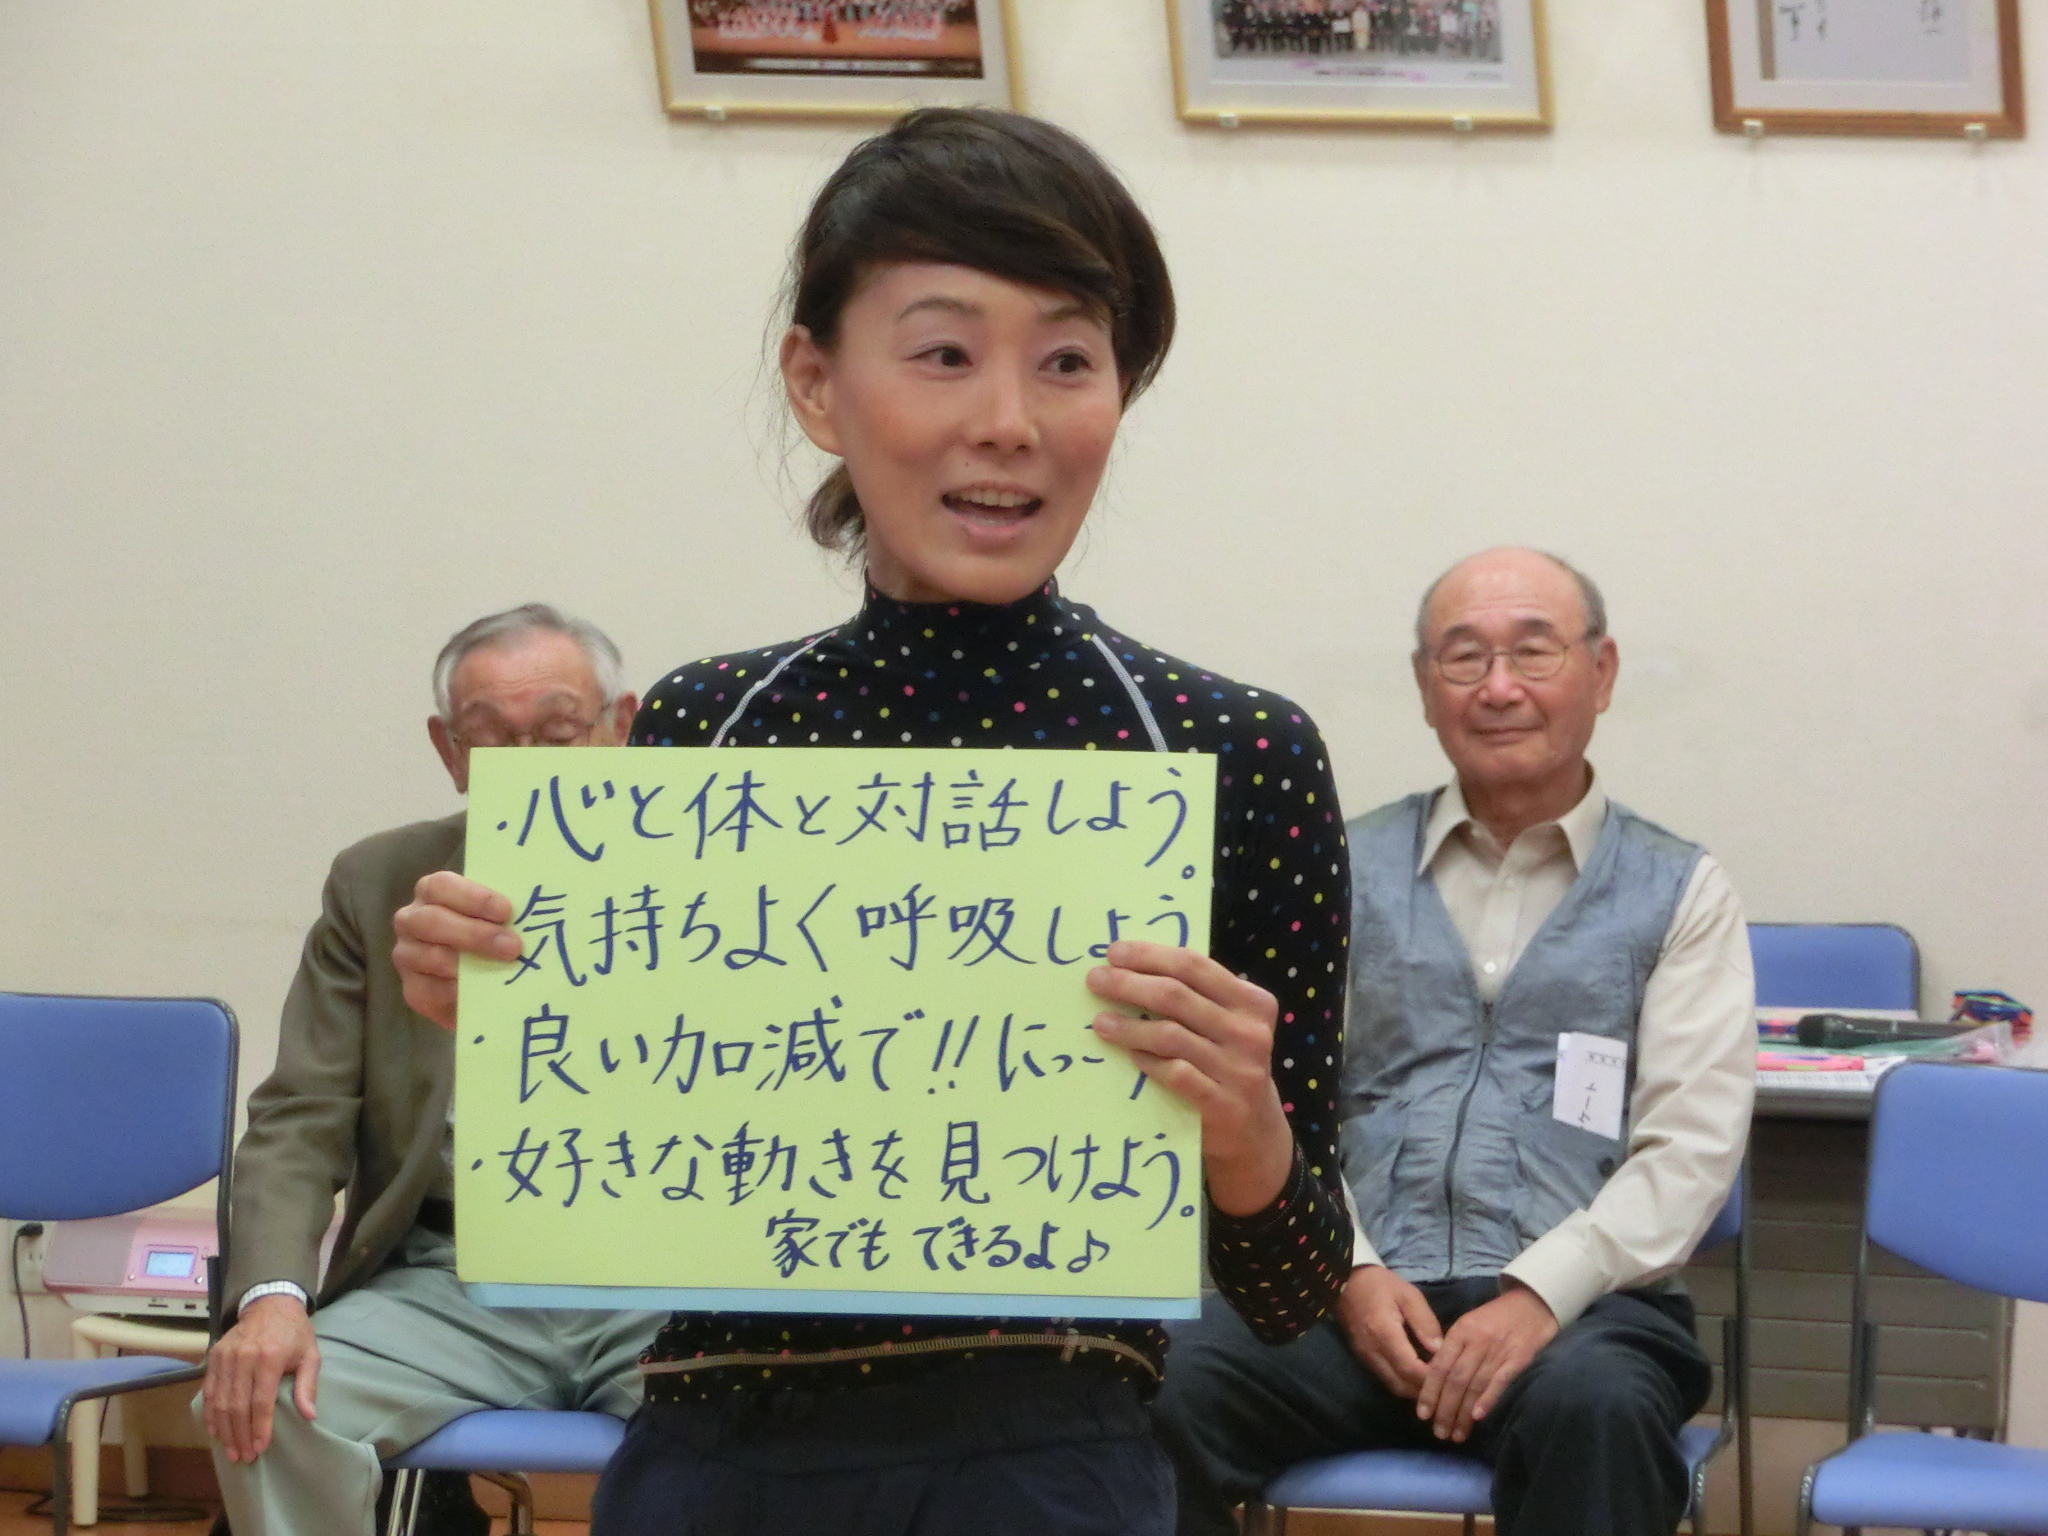 ・心と体と対話しよう。
気持ちよく呼吸しよう
・良い加減で!!にっこ
・好きな動きを見つけよう。
家でもできるよ♪